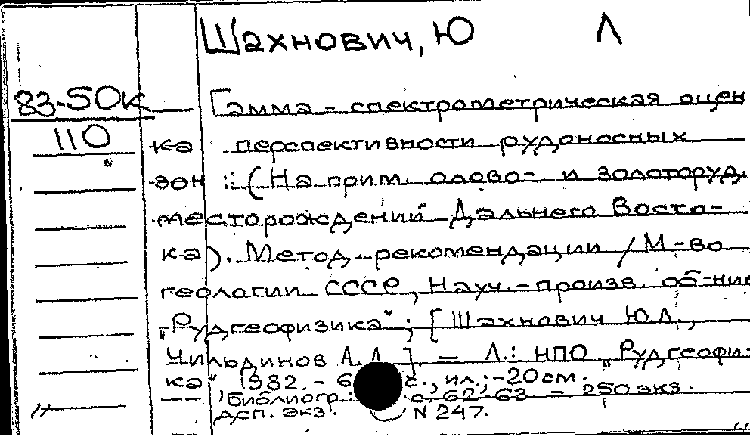 Шахнович, Ю Л
83-50к
110
Гамма-спектрометрическая оцен
ка перспективности рудоносных
зон : (На прим. олово- и золоторуд.
месторождений Дальнего Восто-
ка). Метод. рекомендации / М-во
геологии СССР, Науч.-произв. об-ние
„Рудгеофизика"; [Шахнович Ю.Л.,
А.Л.] — Л.: НПО „Рудгеофи-
ка" 1982. - 6 с., ил.; -20см.
Библиогр.: с. 62-63 - 250 экз.
Дсп. экз. N 247.